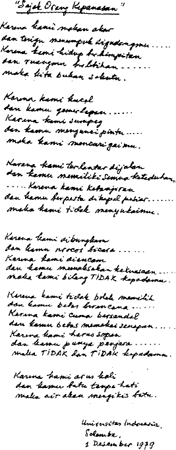 "Sajak Orang Kepanasan"
Karena kami makan akar
dan terigu menumpuk digudangmu ....
Karena kami hidup berhimpitan
dan ruangmu berlebihan ......
maka kita bukan sekutu.
Karena kami kucel
dan kamu gemerlapan ......
Karena kami sumpeg
dan kamu mengunci pintu .....
maka kami mencurigaimu.
Karena kami terlantar dijalan
dan kamu memiliki semua keteduhan.
..... Karena kami kebanjiran
dan kamu berpesta dikapal pesiar .....
maka kami tidak menyukaimu.
Karena kami dibungkam
dan kamu nrocos bicara .....
Karena kami diancam
dan kamu memaksakan kekuasaan ....
maka kami bilang TIDAK kepadamu.
Karena kami tidak boleh memilih
dan kamu bebas berencana .....
Karena kami cuma bersandal
dan kamu bebas memakai senapan ....
Karena kami harus sopan
dan kamu punya penjara .....
maka TIDAK dan TIDAK kepadamu.
Karena kami arus kali
dan kamu batu tanpa hati
maka air akan mengikis batu.
Universitas Indonesia,
Salemba,
1 Desember 1979